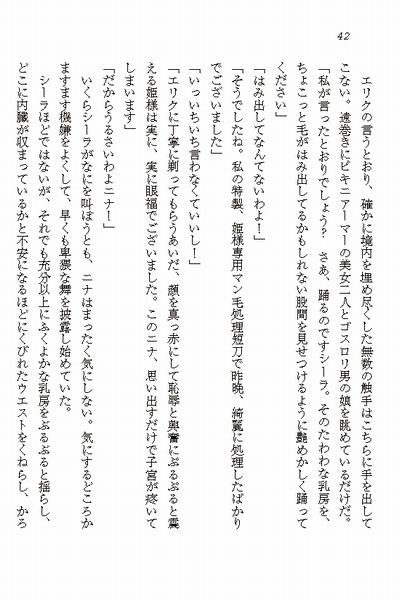 42
エリクの言うとおり、確かに境内を埋め尽くした無数の触手はこちらに手を出して
こない。遠巻きにビキニアーマーの美女二人とゴスロリ男の娘を眺めているだけだ。
「私が言ったとおりでしょう？　さあ、踊るのですシーラ。そのたわわな乳房を、
ちょこっと毛がはみ出してるかもしれない股間を見せつけるように艶めかしく踊って
ください」
「はみ出してなんてないわよ！」
「そうでしたね。私の特製、姫様専用マン毛処理短刀で昨晩、綺麗に処理したばかり
でございました」
「いっいちいち言わなくていいし！」
「エリクに丁寧に剃ってもらうあいだ、顔を真っ赤にして恥辱と興奮にぷるぷると震
える姫様は実に、実に眼福でございました。このニナ、思い出すだけで子宮が疼いて
しまいます」
「だからうるさいわよニナ！」
いくらシーラがなにを叫ぼうとも、ニナはまったく気にしない。気にするどころか
ますます機嫌をよくして、早くも卑猥な舞を披露し始めていた。
シーラほどではないが、それでも充分以上にふくよかな乳房をぶるぶると揺らし、
どこに内臓が収まっているかと不安になるほどにくびれたウエストをくねらし、かろ